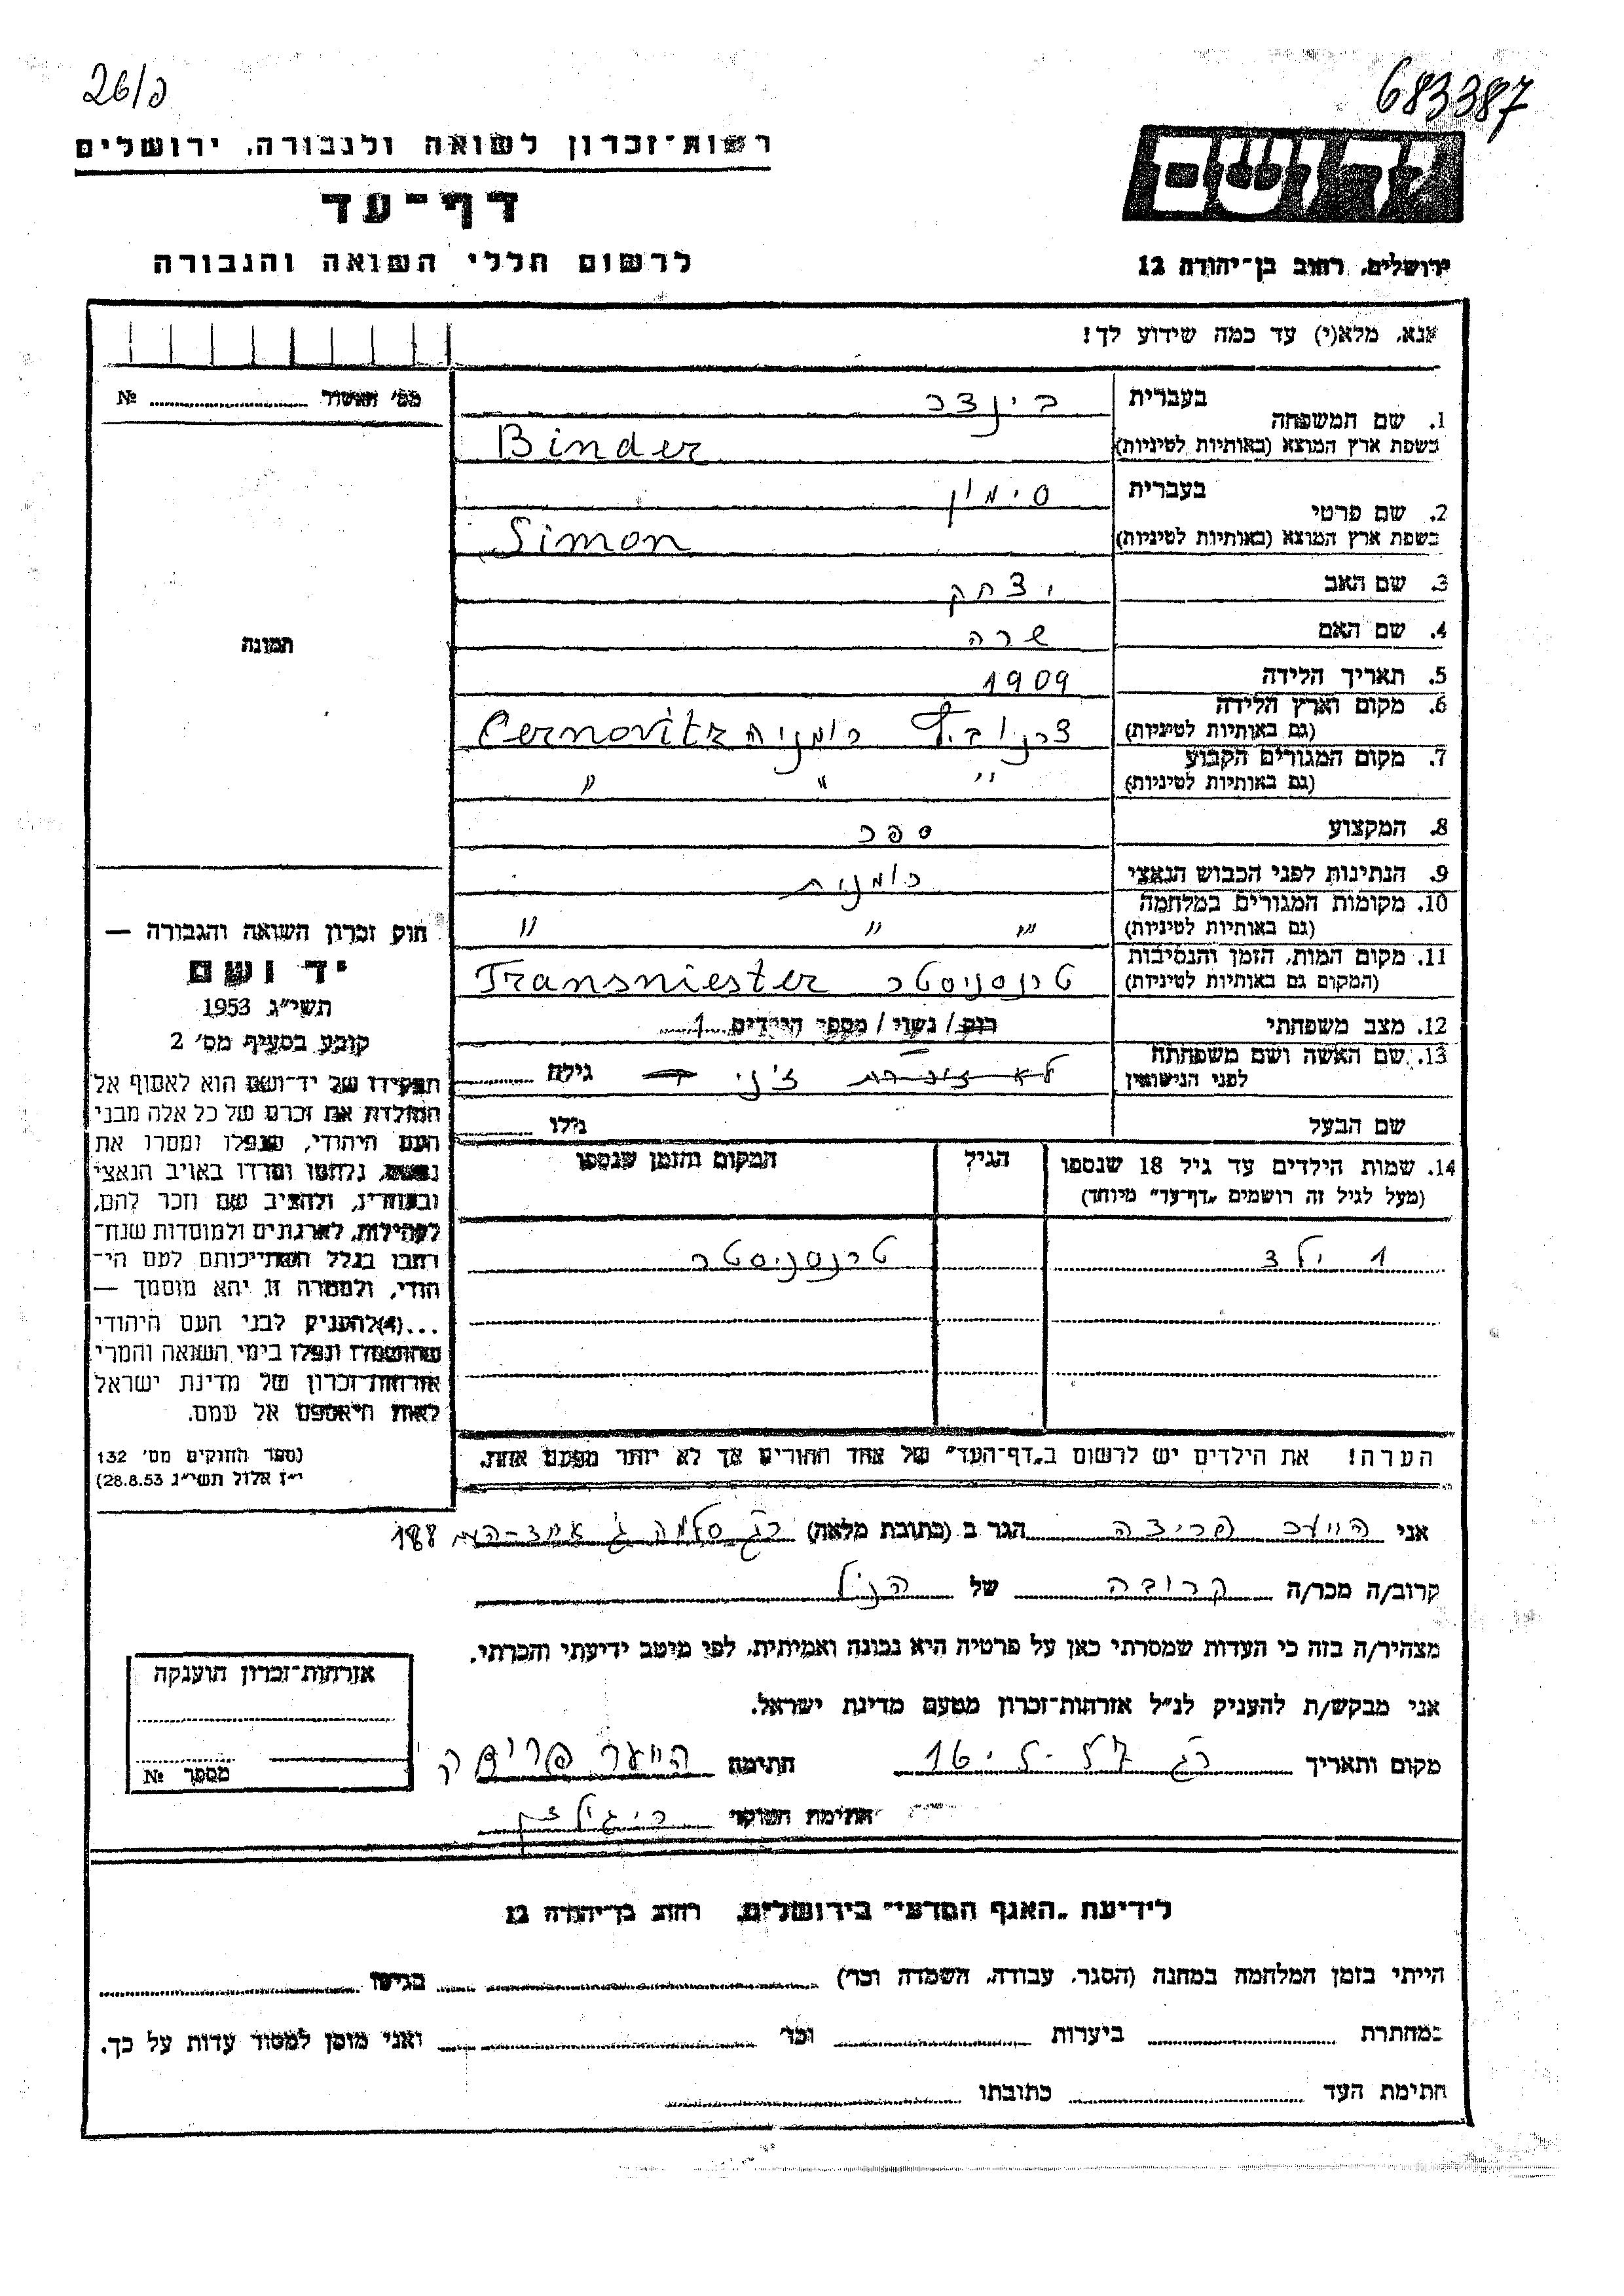 26/פ
683387
רשות־זכרון לשואה ולגבורה, ירושלים
דף־עד
לרשום חללי השואה והגבורה
יד ושם
ירושלים, רחוב בן־יהודה 12
אנא, מלא(י) עד כמה שידוע לך!
מס׳ האשור № 
1. שם המשפחה בעברית בינדר
בשפת ארץ המוצא (באותיות לטיניות) Binder
2. שם פרטי בעברית סימון
בשפת ארץ המוצא (באותיות לטיניות) Simon
3. שם האב יצחק
4. שם האם שרה
5. תאריך הלידה 1909
6. מקום וארץ הלידה (גם באותיות לטיניות) רומניה Cernovitz
7. מקום המגורים הקבוע (גם באותיות לטיניות) " " "
8. המקצוע ספר
9. הנתינות לפני הכבוש הנאצי רומנית
10. מקומות המגורים במלחמה (גם באותיות לטיניות) " " "
11. מקום המות, הזמן והנסיבות (המקום גם באותיות לטיניות) טרנסניסטר Transniester
12. מצב משפחתי רוק/ נשוי/ מספר הילדים 1
13. שם האשה ושם משפחתה לפני הנישואין לא זוכרת ז'ני גילה
שם הבעל גילו
14. שמות הילדים עד גיל 18 שנספו (מעל לגיל זה רושמים „דף־עד״ מיוחד) הגיל המקום והזמן שנספו
1 ילד טרנסניסטר
הערה! את הילדים יש לרשום ב„דף־העד״ של אחד ההורים אך לא יותר מפעם אחת.
תמונה
חוק זכרון השואה והגבורה —
יד ושם
תשי״ג 1953
קובע בסעיף מס׳ 2
תפקידו של יד־ושם הוא לאסוף אל
המולדת את זכרם של כל אלה מבני
העם היהודי, שנפלו ומסרו את
נפשם, נלחמו ומרדו באויב הנאצי
ובעוזריו, ולהציב שם וזכר להם,
לקהילות, לארגונים ולמוסדות שנח־
רבו בגלל השתייכותם לעם הי־
הודי, ולמטרה זו יהא מוסמך —
...(4)להעניק לבני העם היהודי
שהושמדו ונפלו בימי השואה והמרי
אזרחות־זכרון של מדינת ישראל
לאות היאספם אל עמם.
(ספר החוקים מס׳ 132
י״ז אלול תשי״ג 28.8.53)
אני היער פרידה הגר ב (כתובת מלאה) רג 188
קרוב/ה מכר/ה קרובה של הנ"ל
מצהיר/ה בזה כי העדות שמסרתי כאן על פרטיה היא נכונה ואמיתית, לפי מיטב ידיעתי והכרתי.
אני מבקש/ת להעניק לנ״ל אזרחות־זכרון מטעם מדינת ישראל.
מקום ותאריך רג 16.5.57 חתימה היער פרידה
חתימת הפוקד
אזרחות־זכרון הוענקה
מספר №
לידיעת „האגף המדעי״ בירושלים, רחוב בן־יהודה 12
הייתי בזמן המלחמה במחנה (הסגר, עבודה, השמדה וכו׳) בגיטו
במחתרת ביערות וכו׳ ואני מוכן למסור עדות על כך.
חתימת העד כתובתו